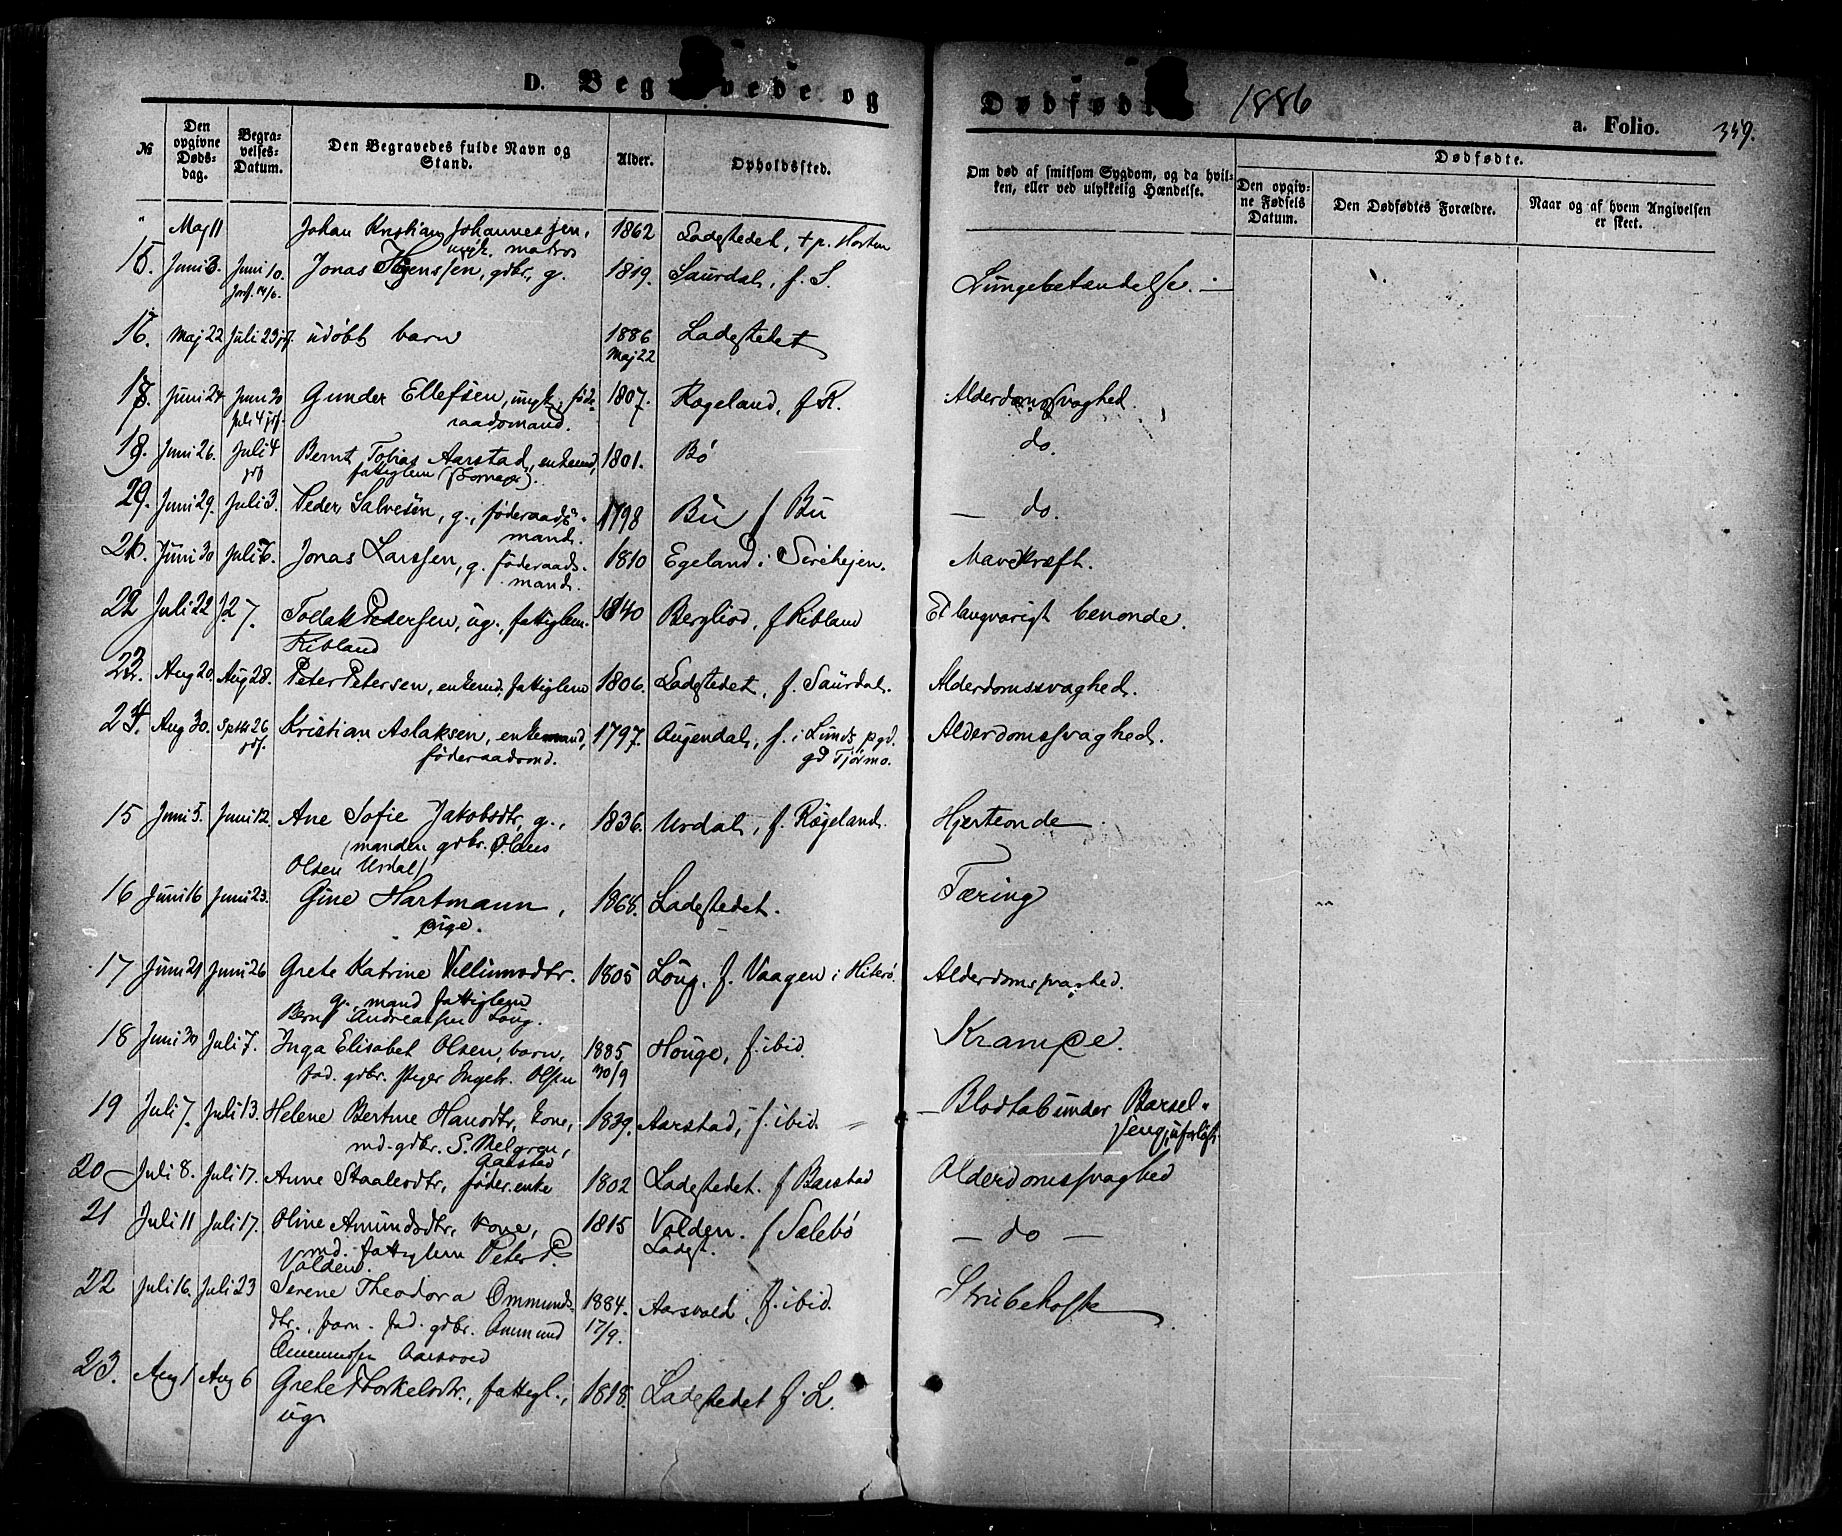 D. Begravede og Dødfødte 1886
a. Folio. 359.
№
Den opgivne Dødsdag.
Begravelses-Datum.
Den Begravedes fulde Navn og Stand.
Alder.
Opholdssted.
Om død af smitsom Sygdom, og da hvilken, eller ved ulykkelig Hændelse.
Dødfødte.
Den opgivne Fødsels Datum.
Den Dødfødtes Forældre.
Naar og af hvem Angivelsen er skeet.
" Maj 11 Johan Kristian Johannessen, 1862 Ladestedet, + p. Horten
ungk. matros
15. Juni 3. Juni 10. Jonas gdbr., g. 1819. Saurdal, f. S. Lungebetændelse.
Jordf. 14/6.
16. Maj 22 Juli 23 jf. udøbt barn 1886 Ladestedet
Maj 22
17. Juni 24 Juni 30 Gunder Ellefsen, ungk., føde- 1807. Rægeland, f. R. Alderdomssvaghed.
Juli 4 jdf. raadsmand.
18. Juni 26. Juli 4 Bernt Tobias Aarstad, enkemd, 1801. Bø do.
jdf fattiglem
29. Juni 29. Juli 3. Peder Salvesen, g., føderaads- 1798 Bu f Bu — do.
mand.
Juni 30 Juli 6. Jonas Larssen, g. føderaads- 1810 Egeland i Sirekejen. Mavekræft.
mand.
22 Juli 22 J. 27. Tollak Pedersen, ug., fattiglem 1840 Bergliod, f Ribland Et langvarigt benonde.
Ribland
Aug 20. Aug 28. Peter Petersen, enkemd. fattiglem 1806. Ladestedet, f. Saurdal. Alderdomssvaghed.
24. Aug 30. Sptbr 26 Kristian Aslaksen, enkemand, 1797. Augendal, f. i Lunds pgd. Alderdomssvaghed.
jdf. føderaadsmd. gd Tjørmo.
15 Juni 5. Juni 12. Ane Sofie Jakobsdtr, g., 1836. Urdal, f. Rægeland. Hjerteonde
(manden gdbr. Olaus
Olsen Urdal)
16 Juni 16 Juni 23. Gine Hartmann, 1868. Ladestedet. Tæring
pige.
17 Juni 21 Juni 26 Grete Katrine Villumsdtr. 1805 Loug, f. Vaagen i Hiterø. Alderdomssvaghed.
g., mand fattiglem
Bernt Andreassen Loug.
18 Juni 30 Juli 7. Inga Elisabet Olsen, barn, 1885 Houge, f. ibid. Krampe.
fad. gdbr. Ingebr. Olsen 30/9
19 Juli 7. Juli 13. Helene Bertine Hansdtr, kone, 1839. Aarstad, f. ibid. — Blodtab under Barsel-
md. gdbr. S. Melgren, seng, uforløst.
Aarstad
20 Juli 8. Juli 17. Anne Staalesdtr, føder. enke 1802 Ladestedet. f Barstad Alderdomssvaghed
21 Juli 11 Juli 17. Oline Amundsdtr, kone, 1815 Valden. f Sælebø — do —
md. fattiglem Peter P. Ladest.
Valden.
22 Juli 16. Juli 23 Serene Theodora Ommunds- 1884. Aarsvold, f. ibid. Strubehoste
dtr., barn. fad. gdbr. Ommund 17/9.
Ommundsen Aarsvold
23. Aug 1 Aug 6 Grete Torkelsdtr., fattigl., 1818. Ladestedet f. L.
ug.